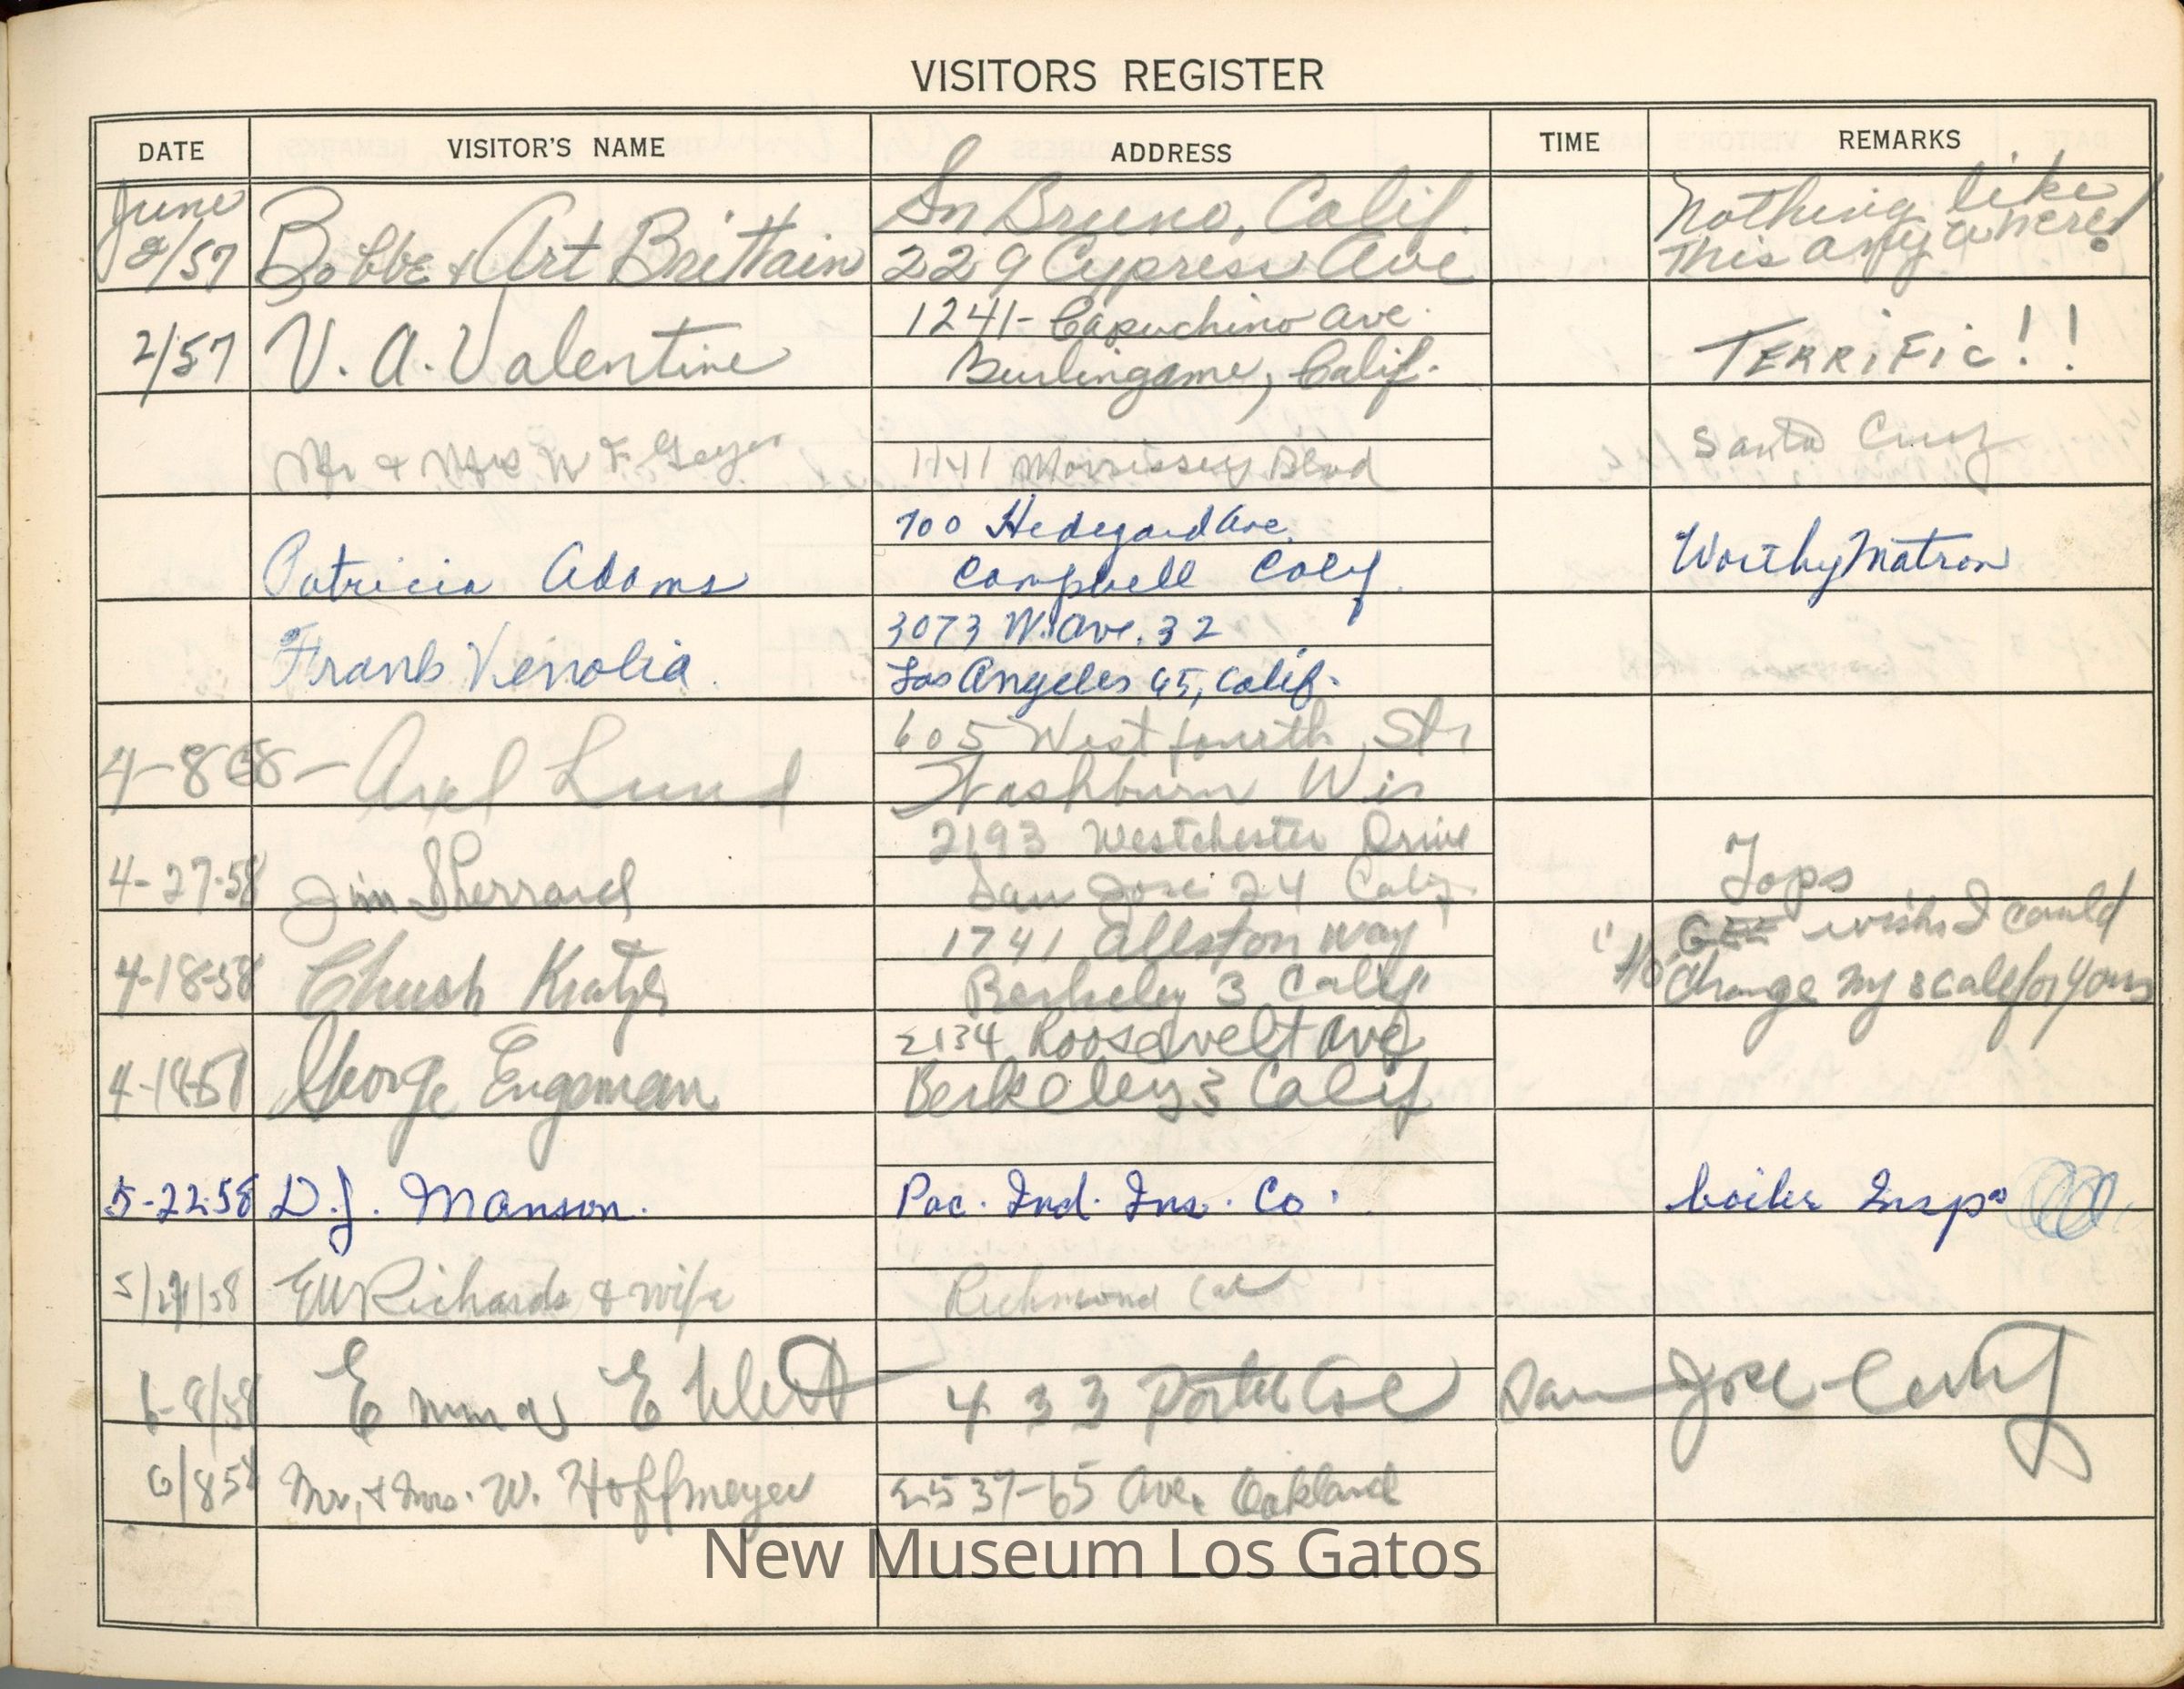 VISITORS REGISTER
DATE VISITOR'S NAME ADDRESS TIME REMARKS
June Sn Bruno, Calif. Nothing like
2/57 Bobbe & Art Brittain 229 Cypress Ave this anywhere!
1241- Capuchino Ave.
2/57 V. A. Valentine Burlingame, Calif. TERRiFic!!
Mr & Mrs W F. Geyer 1141 Morrissey Blvd Santa Cruz
700 Hedegard Ave.
Patricia Adams Campbell Calif. Worthy Matron
3073 W. Ave. 32
Frank Venolia. Los Angeles 65, Calif.
605 West fourth Str
4-8 58- Axel Lund Washburn Wis
2193 Westchester Drive
4-27-58 Jim Sherrard San Jose 24 Calif. Tops
1741 Allston Way "GEE wish I could
4-18-58 Chuck Kratzer Berkeley 3 Calif. change my scale for yours
2134 Roosevelt Ave
George Engeman Berkeley 3 Calif
5-22-58 D. J. Manson. Pac. Ind. Ins. Co. boiler Insp.
58 EW Richards & wife Richmond Cal
6-8/58 Emma 433 San Jose
6/8 58 Mr. & Mrs. W. Hoffmeyer 2537-65 Ave. Oakland
New Museum Los Gatos